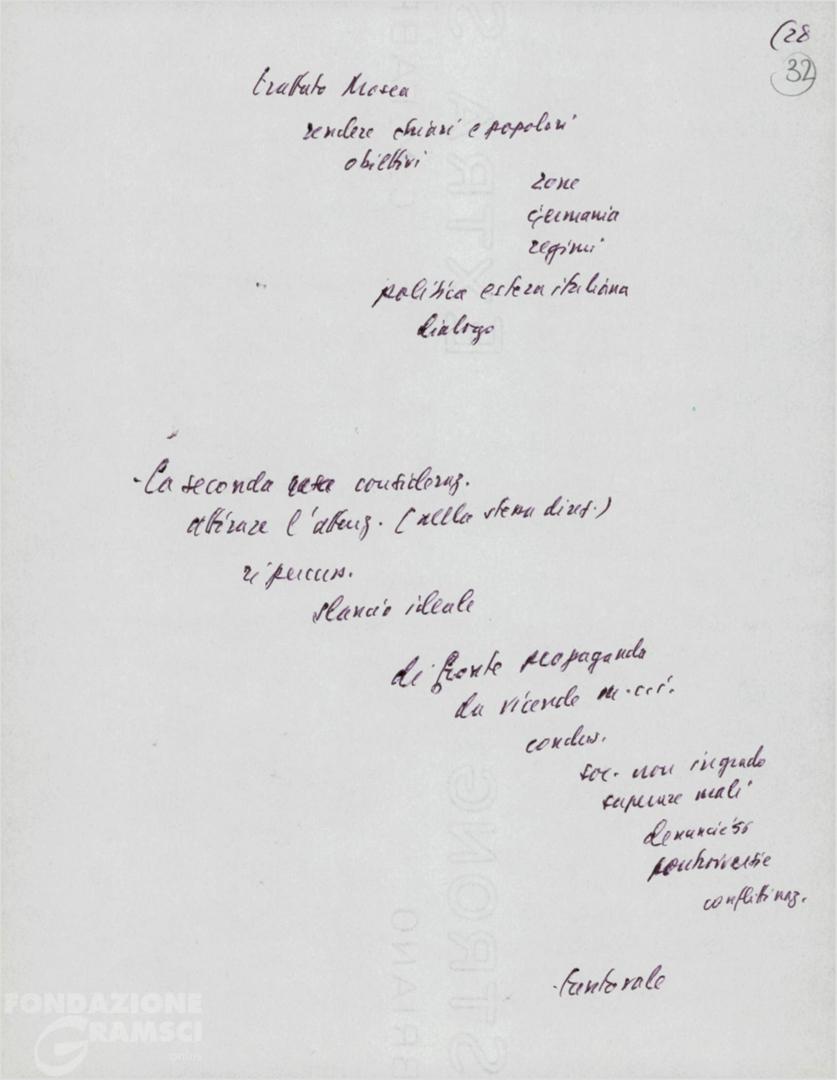 (28
32
trattato Mosca
rendere chiari e popolari
obiettivi
zone
Germania
regimi
politica estera italiana
dialogo
- La seconda consideraz.
attirare l'attenz. (nella stessa direz.)
ripercuss.
slancio ideale
di fronte propaganda
da vicende
conclus.
soc. non in grado
superare mali
denunciati
controversie
conflitti naz.
- tanto vale
FABRIANO
EXTRA STRONG
FONDAZIONE
GRAMSCI
onlus